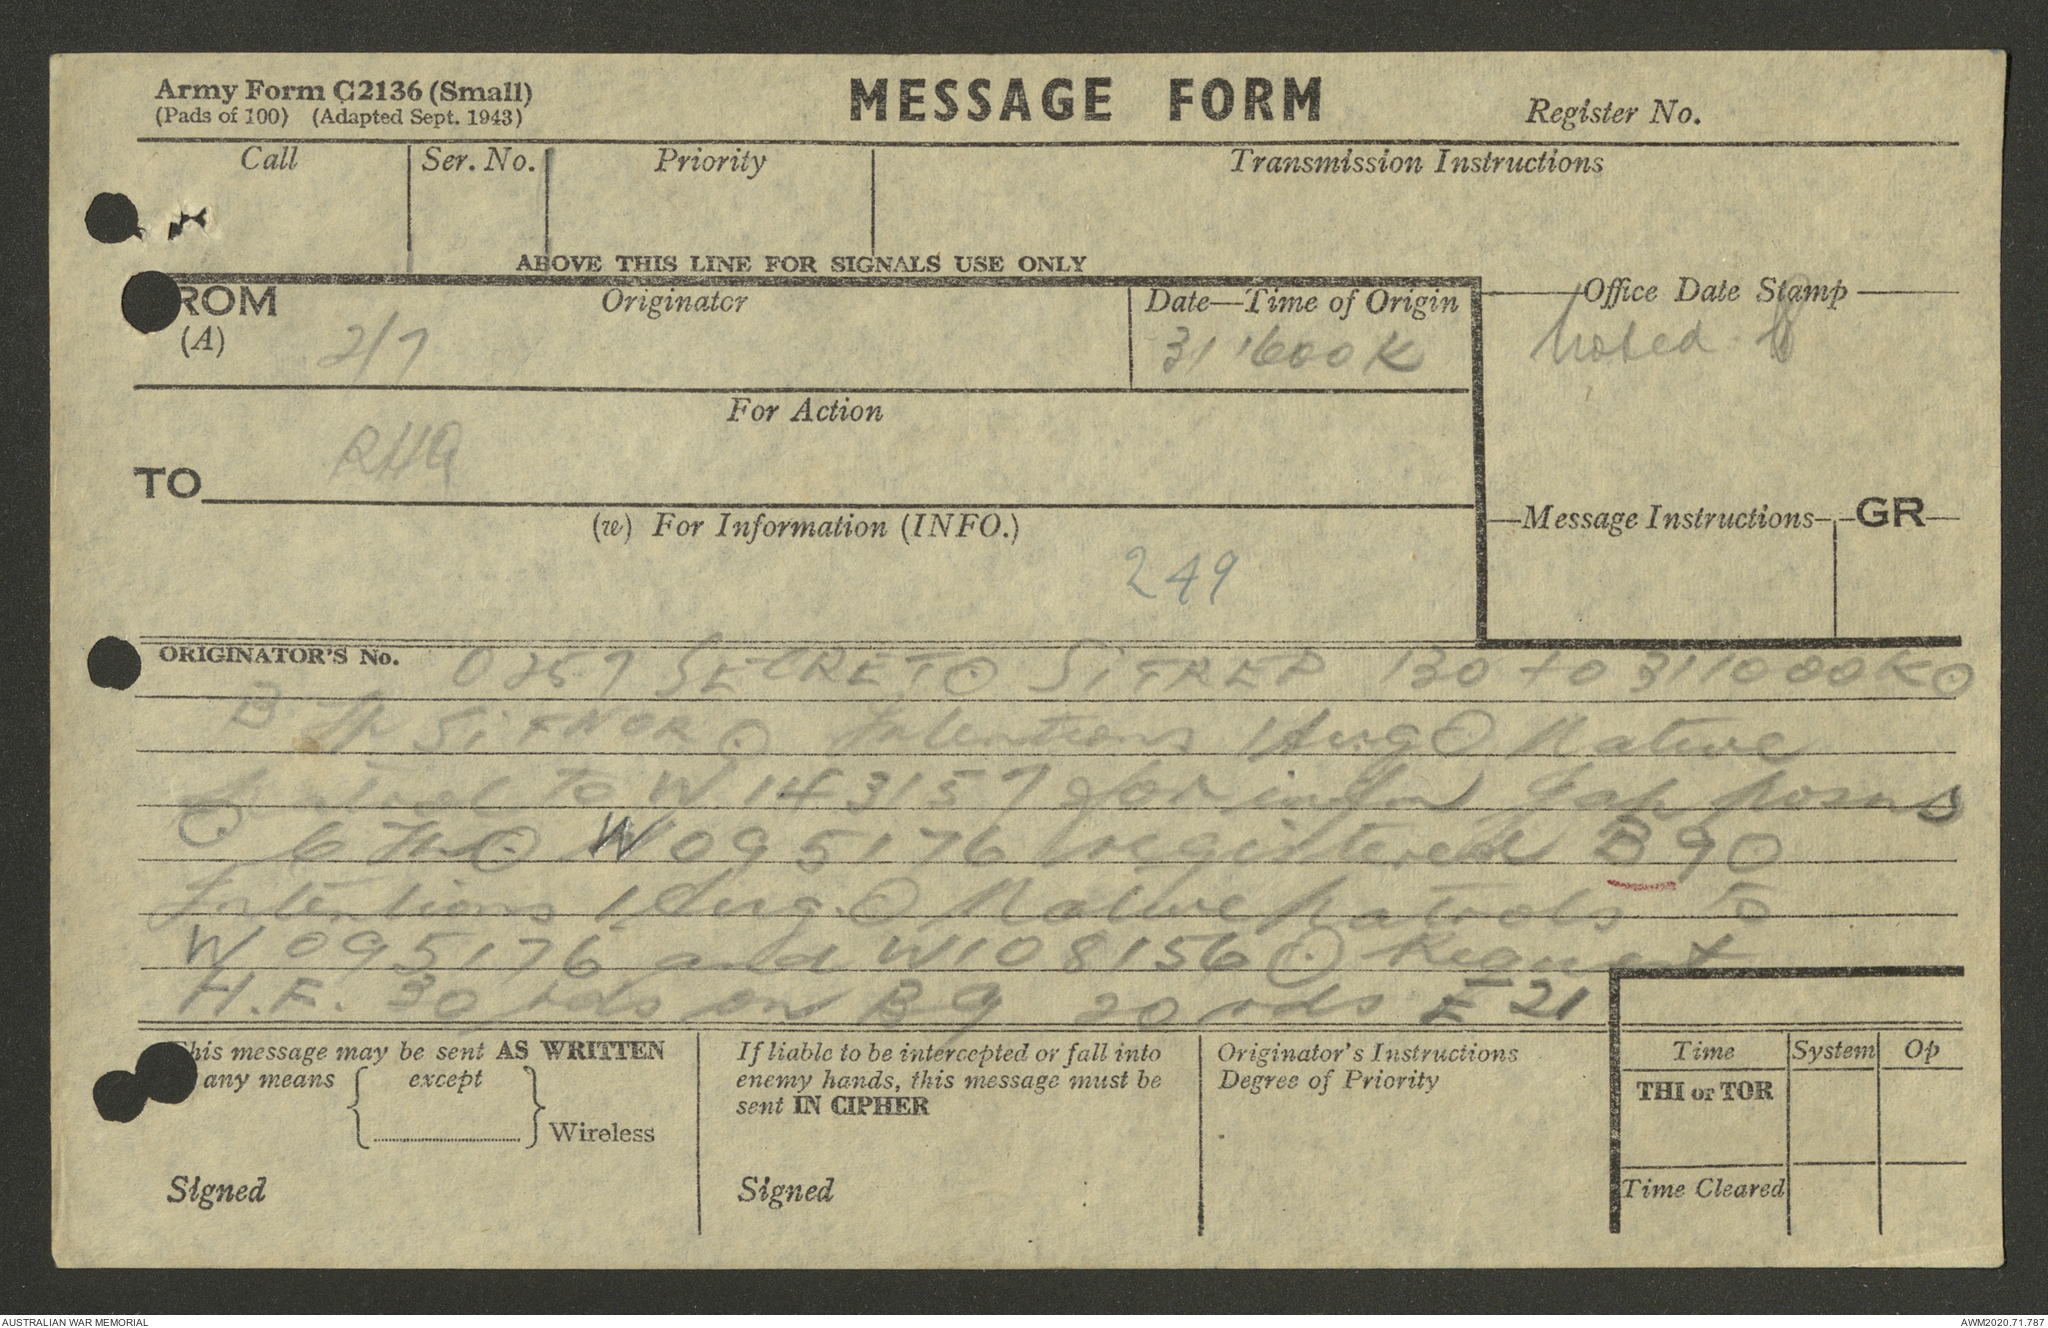 Army Form C2136 (Small)
(Pads of 100) (Adapted Sept. 1943)
MESSAGE FORM
Register No.
Call
Ser. No.
Priority
Transmission Instructions
ABOVE THIS LINE FOR SIGNALS USE ONLY
ROM
(A)
Originator
2/7
Date—Time of Origin
311600K
Office Date Stamp
Noted
For Action
TO
RHQ
(w) For Information (INFO.)
249
Message Instructions
GR
ORIGINATOR'S No. O257 SECRET ⊙ SITREP 130 to 311000K ⊙
B Tp SITNOR ⊙ Intentions 1 Aug ⊙ Native
patrol to W 143157 for infm Jap posns
⊙ 6 Tp ⊙ W 095176 registered B90
Intentions 1 Aug. ⊙ Native patrols to
W 095176 and W108156 ⊙ Request
H.F. 30 rds on B9 20 rds E21
his message may be sent AS WRITTEN
any means except
Wireless
Signed
If liable to be intercepted or fall into
enemy hands, this message must be
sent IN CIPHER
Signed
Originator's Instructions
Degree of Priority
Time
System
Op
THI or TOR
Time Cleared
AUSTRALIAN WAR MEMORIAL
AWM2020.71.787